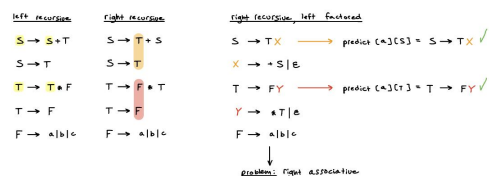 left recursive
S → S + T
S → T
T → T * F
T → F
F → a|b|c
right recursive
S → T + S
S → T
T → F * T
T → F
F → a|b|c
right recursive, left factored
S → TX → predict [a][S] = S → TX ✓
X → + S | ε
T → FY → predict [a][T] = T → FY ✓
Y → * T | ε
F → a|b|c
problem: right associative